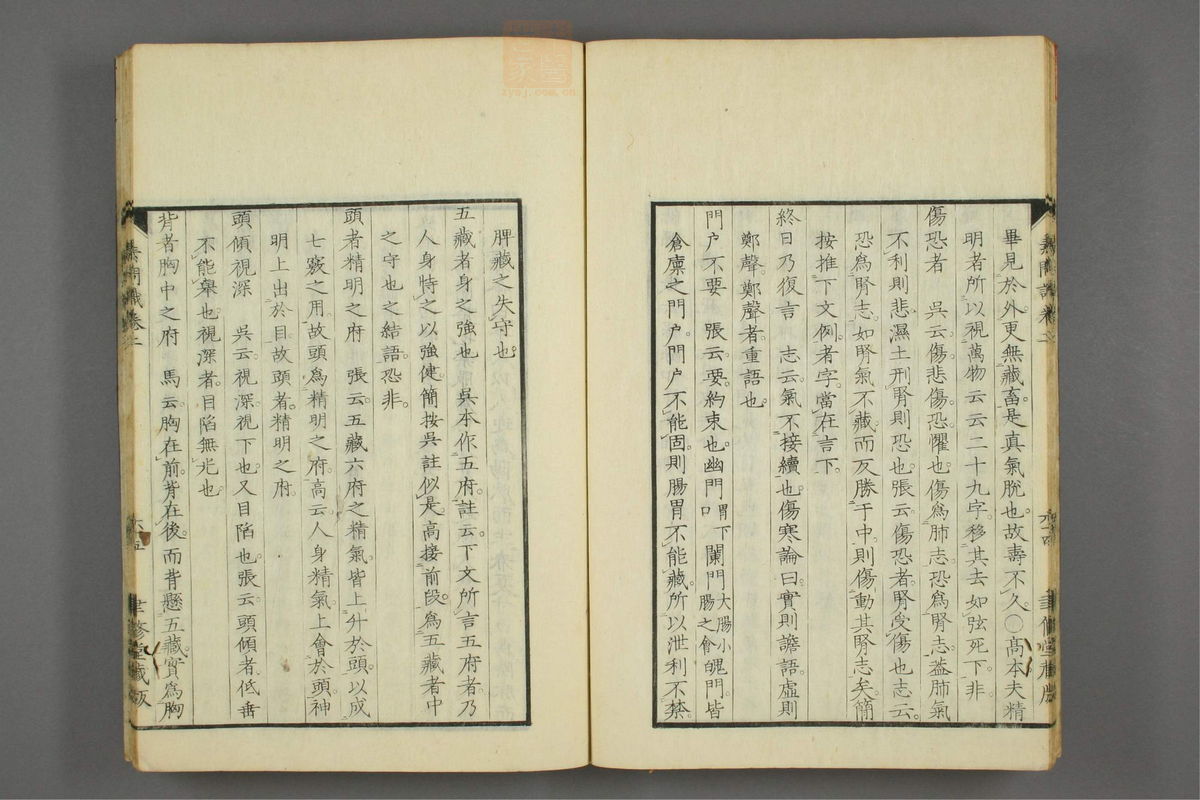 畢見於外更無藏畜是真氣脫也故壽不久〇高本夫精
明者所以視萬物云云二十九字移其去如弦死下非
傷恐者　吳云傷悲傷恐懼也傷爲肺志恐爲腎志蓋肺氣
不利則悲濕土刑腎則恐也張云傷恐者腎受傷也志云
恐爲腎志如腎氣不藏而反勝于中則傷動其腎志矣簡
按推下文例者字當在言下
終日乃復言　志云氣不接續也傷寒論曰實則譫語虛則
鄭聲鄭聲者重語也
門戶不要　張云要約束也幽門胃下口闌門大腸小腸之會魄門皆
倉廩之門戶門戶不能固則腸胃不能藏所以泄利不禁
脾藏之失守也
五藏者身之強也　吳本作五府註云下文所言五府者乃
人身恃之以強健簡按吳註似是高接前段爲五藏者中
之守也之結語恐非
頭者精明之府　張云五藏六府之精氣皆上升於頭以成
七竅之用故頭爲精明之府高云人身精氣上會於頭神
明上出於目故頭者精明之府
頭傾視深　吳云視深視下也又目陷也張云頭傾者低垂
不能舉也視深者目陷無光也
背者胸中之府　馬云胸在前背在後而背懸五藏實爲胸
素問識卷二
六十五
聿修堂藏版